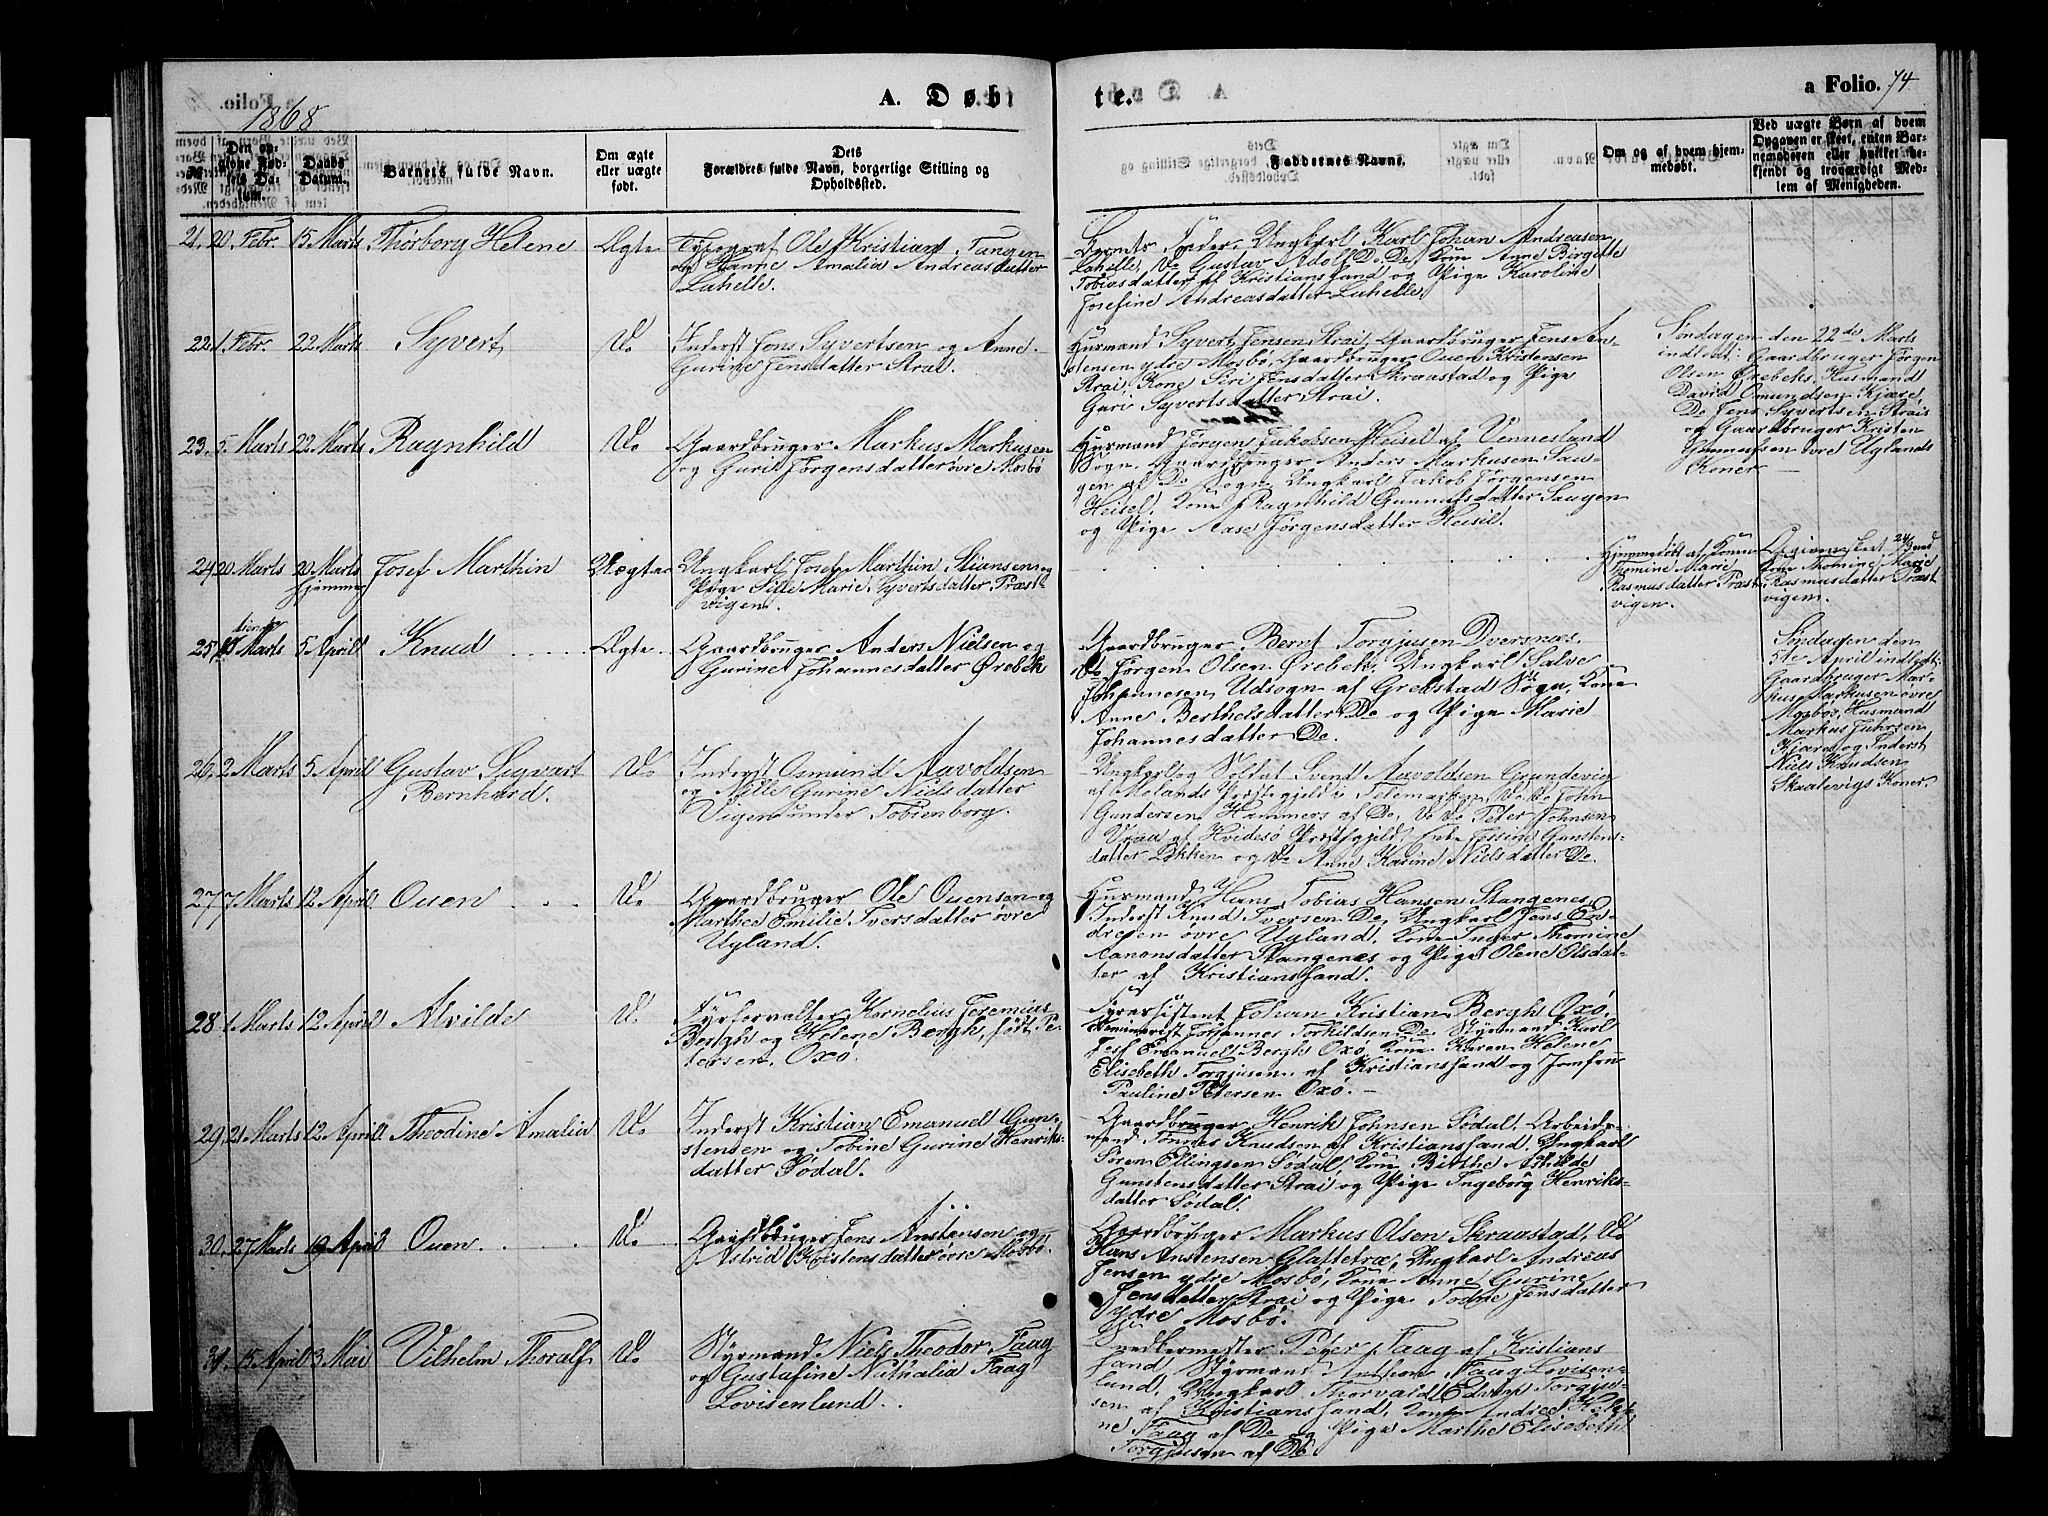 1868
A. Døbte.
a Folio. 74
№
Den opgivne Fødsels Datum.
Daabs Datum.
Barnets fulde Navn.
Om ægte eller uægte født.
Dets Forældres fulde Navn, borgerlige Stilling og Opholdssted.
Faddernes Navne.
Om og af hvem hjemmedøbt.
Ved uægte Børn af hvem Opgaven er skeet, enten Barnemoderen eller hvilket bekjendt og troværdigt Medlem af Menigheden.
21. 20 Febr. 15 Marts Thorborg Helene Ægte
Typograf Ole Kristian Tangen
og Hanne Amalia Andreasdatter
Lahelle.
Barnets Fader, Ungkarl Karl Johan Andreasen
Lahelle, Do Gustav Adolf Do De, Kone Anne Birgitte
Tobiasdatter af Kristianssand og Pige Karoline
Josefine Andreasdatter Lahelle.
22. 1 Febr. 22 Marts Syvert Do
Inderst Jens Syvertsen og Anne
Gurine Jensdatter Strai.
Husmand Syvert Jensen Strai, Gaardbruger Jens An-
stensen ydre Mosbø, Gaardbruger Ouen Kristensen
Strai, Kone Siri Jensdatter Skraastad og Pige
Guri Syvertsdatter Strai.
Søndagen den 22de Marts
indledt: Gaardbruger Jørgen
Olsen Ørebeks, Husmand
David Omundsen Kjære,
Do Jens Syvertsen Strais
og Gaardbruger Kristen
Gunnufsen øvre Uglands
Koner
23. 5 Marts 22 Marts Ragnhild Do
Gaardbruger Markus Markusen
og Guri Jørgensdatter øvre Mosbø
Husmand Jørgen Jakobsen Heisel af Vennesland
Sogn, Gaardbruger Anders Markusen Sau-
gen af Do Sogn, Ungkarl Jakob Jørgensen
Heisel, Kone Ragnhild Gunnufsdatter Saugen
og Pige Aase Jørgensdatter Heisel.
24. 20 Marts 20 Marts Josef Marthin Uægte
hjemme
Ungkarl Josef Marthin Stiansen og
Pige Sille Marie Syvertsdatter Præst-
vigen.
Hjemmedøbt af Konen
Thomine Marie
Rasmusdatter Præst-
vigen.
Opgivensted
Kone Thomine Marie
Rasmusdatter Præst
vigen.
25. 10 tiende Marts 5 April Knud Ægte
Gaardbruger Anders Nielsen og
Gurine Johannesdatter Ørebek
Gaardbruger Bernt Torgjusen Dversnæs,
Do Jørgen Olsen Ørebek, Ungkarl Salve
Johannesen Udsogn af Grebstad Sogn, Kone
Anne Berthelsdatter De og Pige Marie
Johannesdatter De.
Søndagen den
5te April indledt:
Gaardbruger Mar-
kus Markusen øvre
Mosbøs, Husmand
Markus
Kjæres og Inderst
Niels Knudsen
Skaalevigs Koner.
26. 2 Marts 5 April Gustav Sigvart Do
Bernhard.
Inderst Osmund Aavoldsen
og Nille Gurine Nielsdatter
Vigen under Tobienborg.
Ungkarl og Soldat Svend Aavoldsen Grundevig
af Molands Præstegjeld i Telemarken, Do Do John
Gundersen Hammers af De, Do Do Peter Johnsen
Vraa af Hvidesø Præstegjeld, Enke Jessine Gunstens-
datter Løkken og Do Anne Karine Nielsdatter De.
27. 7 Marts 12 April Ouen Do
Gaardbruger Ole Ouensen og
Marthe Emilie Iversdatter øvre
Ugland.
Husmand Hans Tobias Hansen Stangenes,
Inderst Knud Iversen De, Ungkarl Jens En-
dresen øvre Ugland, Kone Inger Thomine
Aanonsdatter Stangenæs og Pige Olene Olsdat-
ter af Kristianssand.
28. 1 Marts 12 April Alvilde Do
Fyrforvalter Kornelius Jeremias
Bergh og Helene Bergh, født Pe-
tersen, Oxø.
Fyrassistent Johan Kristian Bergh Oxø,
Seminarist Johannes Torkildsen De Styrmand Karl
Josef Emanuel Bergh Oxø, Kone Karen Helene
Elisabeth Torgjusen af Kristianssand og Jomfru
Pauline Petersen Oxø.
29. 21 Marts 12 April Theodine Amalia Do
Inderst Kristian Emanuel Gun-
stensen og Tobine Gurine Henriks-
datter Sødal.
Gaardbruger Henrik Johnsen Sødal, Arbeids-
mand Tønnes Knudsen af Kristianssand, Ungkarl
Søren Ellingsen Sødal, Kone Birthe Ashilde
Gunstensdatter Strai og Pige Ingeborg Henriks-
datter Sødal.
30. 27 Marts 19 April Ouen Do
Gaardbruger Jens Anstensen og
Astrid Kristensdatter øvre Mosbø.
Gaardbruger Markus Olsen Skraastad, Do
Hans Anstensen Glattetræ, Ungkarl Andreas
Jensen ydre Mosbø, Kone Anne Gurine
Jensdatter Strai og Pige Tobine Jensdatter
ydre Mosbø.
31. 15 April 3 Mai Vilhelm Thoralf Do
Styrmand Niels Theodor Faag
og Gustafine Nathalia Faag
Lovisenlund.
Snedkermester Peter Faag af Kristians
sand, Styrmand Anthon Faag Lovisen-
lund, Ungkarl Thorvald Edvard Torgju-
sen af Kristianssand, Kone Andrea
Faag af De og Pige Marthe Elisebeth
Torgjusen af De.